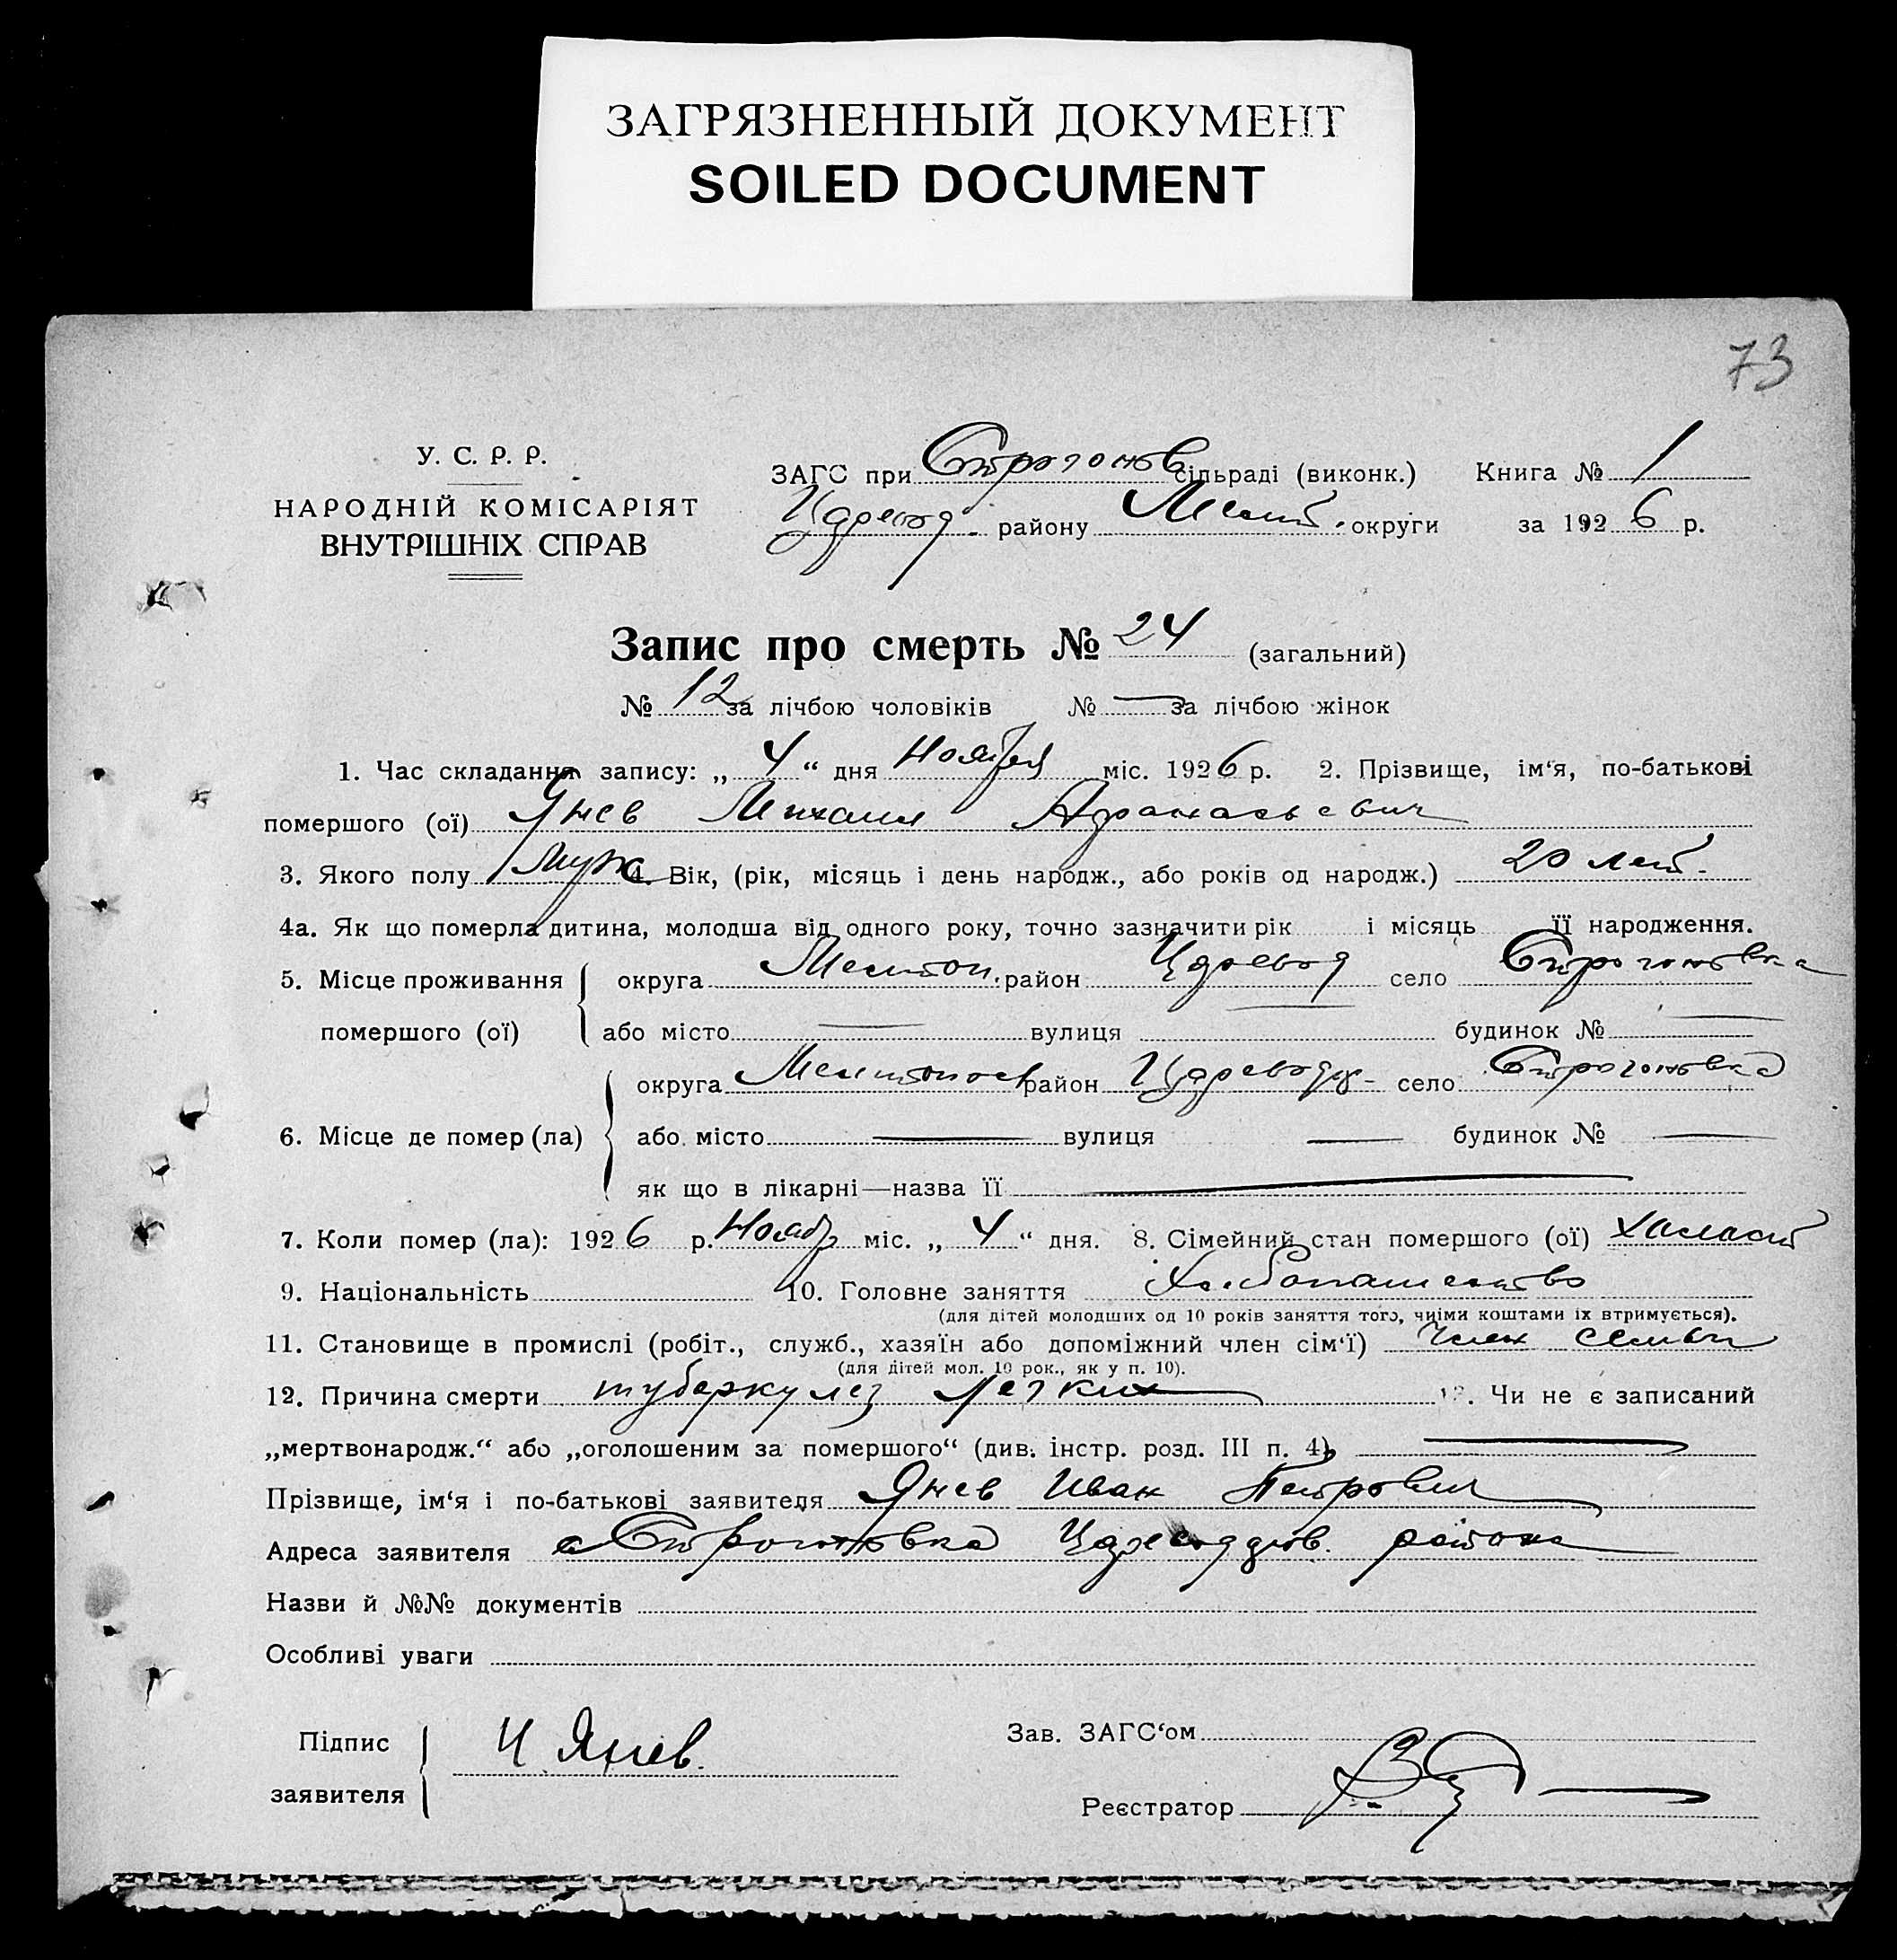 ЗАГРЯЗНЕННЫЙ ДОКУМЕНТ
SOILED DOCUMENT
73
У. С. Р. Р.
НАРОДНІЙ КОМІСАРІЯТ
ВНУТРІШНІХ СПРАВ
ЗАГС при Строгонов сільраді (виконк.) Книга № 1
району Мелит. округи за 1926 р.
Запис про смерть № 24 (загальний)
№ 12 за лічбою чоловіків № — за лічбою жінок
1. Час складання запису: „ 4 “ дня Ноября міс. 1926 р. 2. Прізвище, ім‘я, по-батькові
помершого (ої) Янев Михаил Афанасьевич
3. Якого полу Муж 4. Вік, (рік, місяць і день народж., або років од народж.) 20 лет.
4а. Як що померла дитина, молодша від одного року, точно зазначити рік і місяць її народження.
5. Місце проживання округа Мелитоп. район Царевод село Строгоновка
помершого (ої) або місто — вулиця — будинок № —
округа Мелитопол район Цареводр- село Строгоновка
6. Місце де помер (ла) або місто — вулиця — будинок № —
як що в лікарні—назва її —
7. Коли помер (ла): 1926 р. Ноябр міс. „ 4 “ дня. 8. Сімейний стан помершого (ої) Холост
9. Національність 10. Головне заняття Хлебопашество
(для дітей молодших од 10 років заняття того, чиїми коштами їх втримується).
11. Становище в промислі (робіт., служб., хазяїн або допоміжний член сім‘ї) Член семьи
(для дітей мол. 10 рок., як у п. 10).
12. Причина смерти туберкулез легких 13. Чи не є записаний
„мертвонародж.“ або „оголошеним за помершого“ (див. інстр. розд. III п. 4) —
Прізвище, ім‘я і по-батькові заявителя Янев Иван Петрович
Адреса заявителя с Строгоновка района
Назви й №№ документів
Особливі уваги
Підпис
заявителя
И. Янев.
Зав. ЗАГС‘ом
Реєстратор